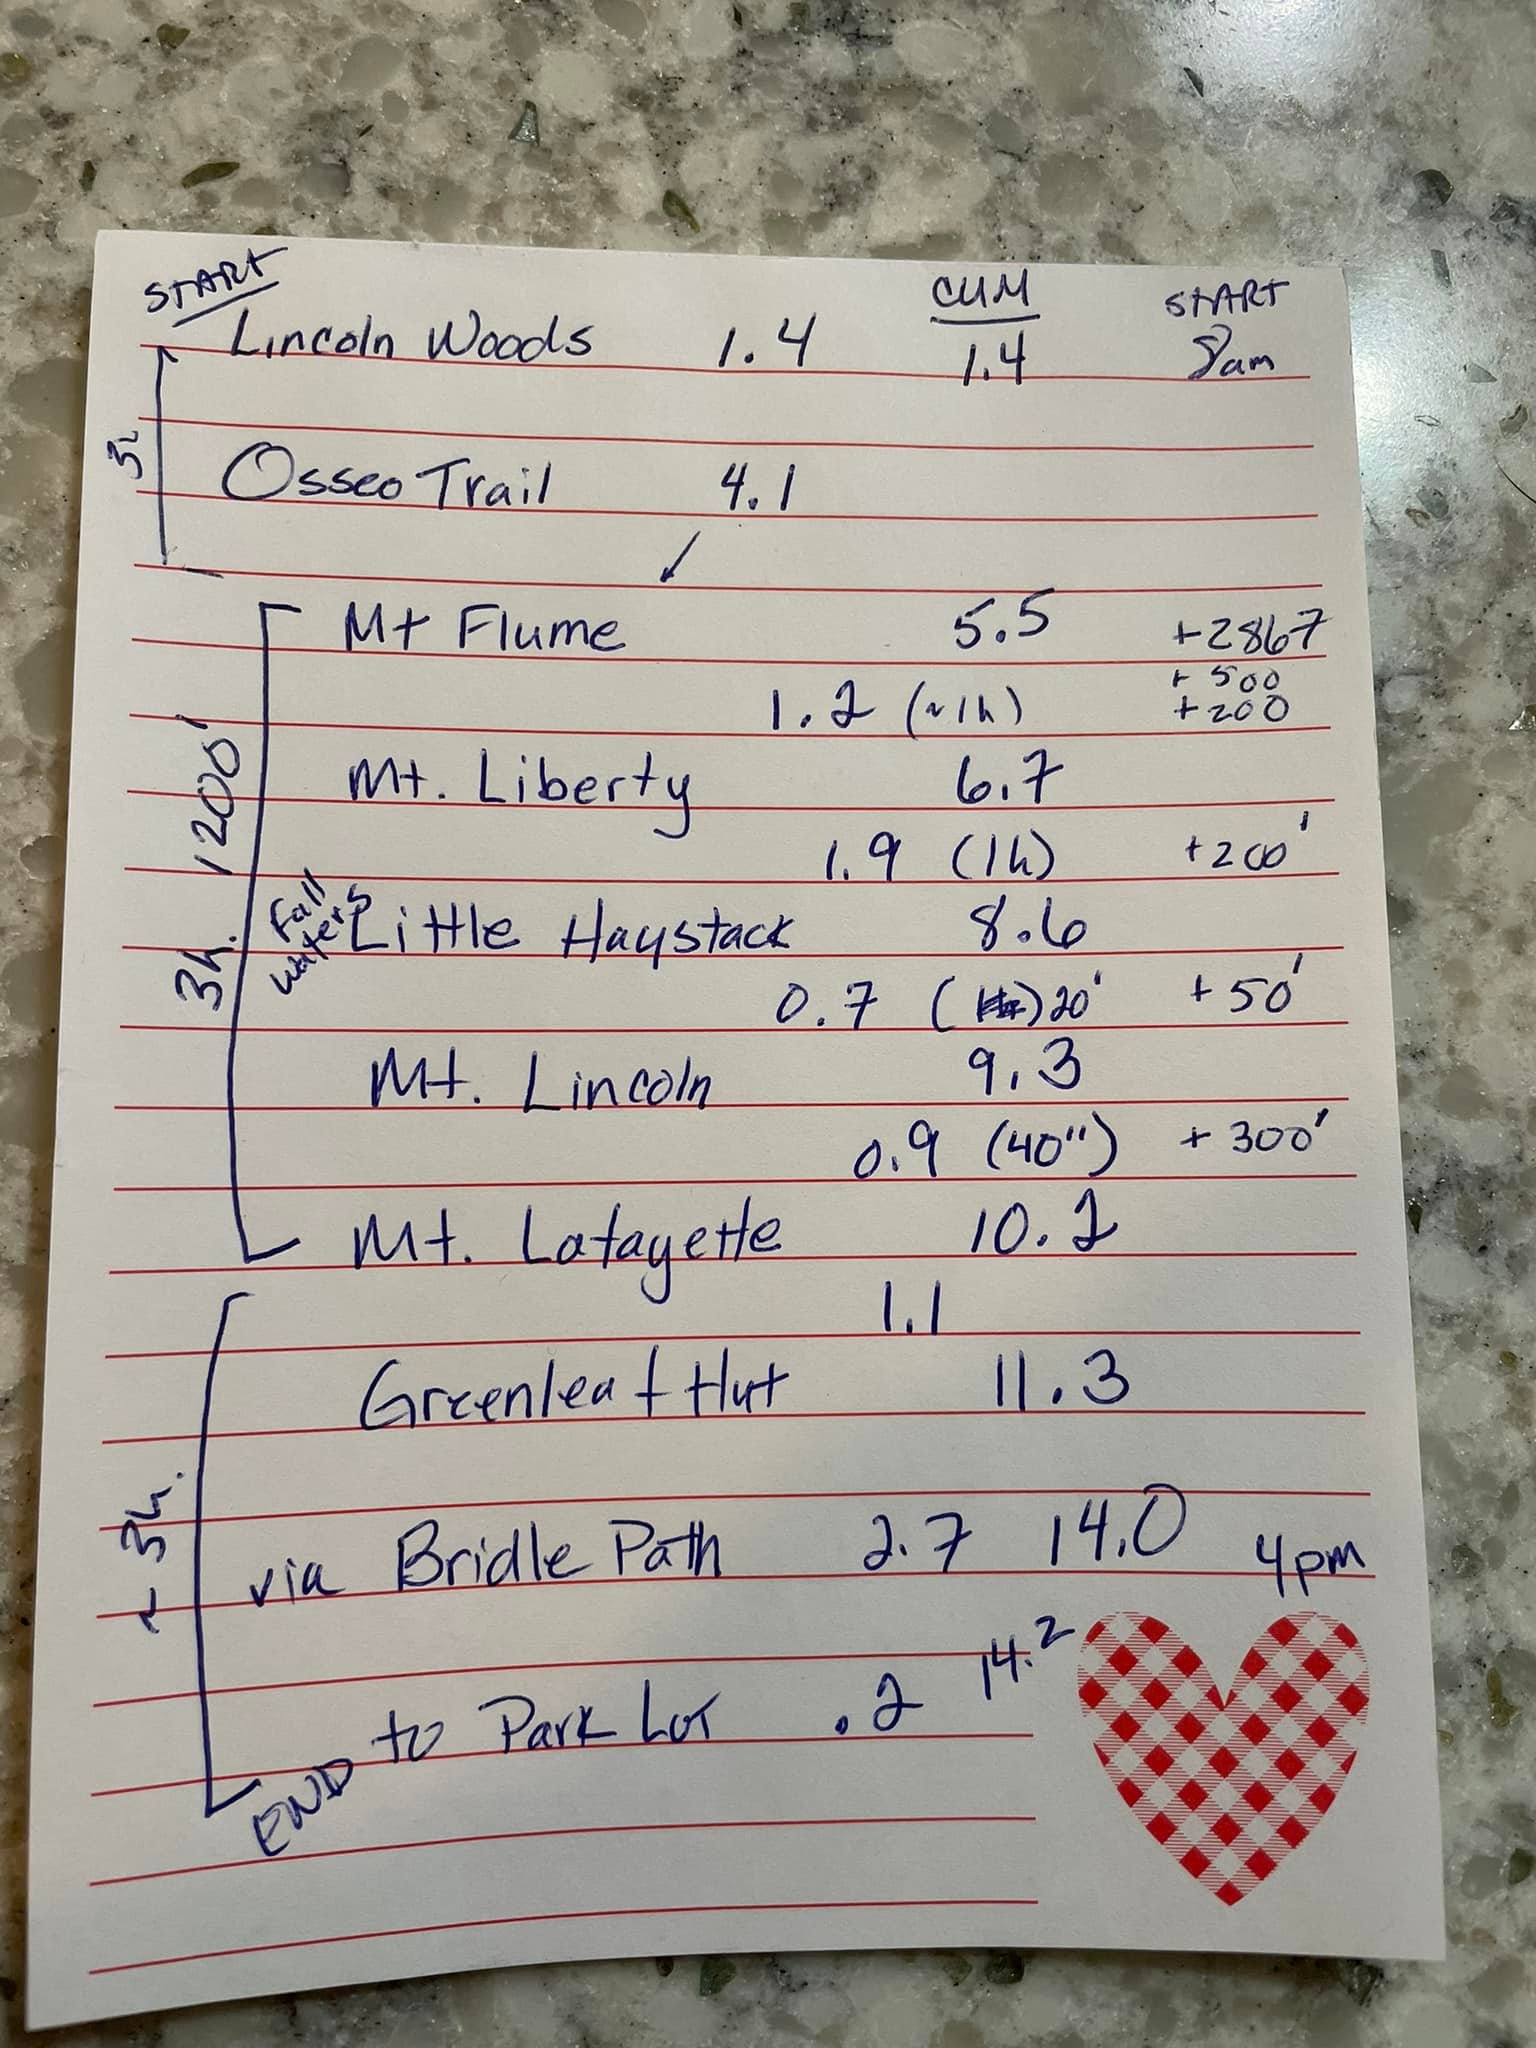 START CUM START
Lincoln Woods 1.4 1.4 8am
Osseo Trail 4.1
Mt Flume 5.5 +2867
+ 500
1.2 (~1h) +200
Mt. Liberty 6.7
1.9 (1h) +200'
Fall
waters
Little Haystack 8.6
0.7 ( ) 20' +50'
Mt. Lincoln 9.3
0.9 (40") + 300'
Mt. Lafayette 10.2
3h. 1200'
1.1
Greenleaf Hut 11.3
via Bridle Path 2.7 14.0 4pm
~ 3h.
END to Park Lot .2 14.2